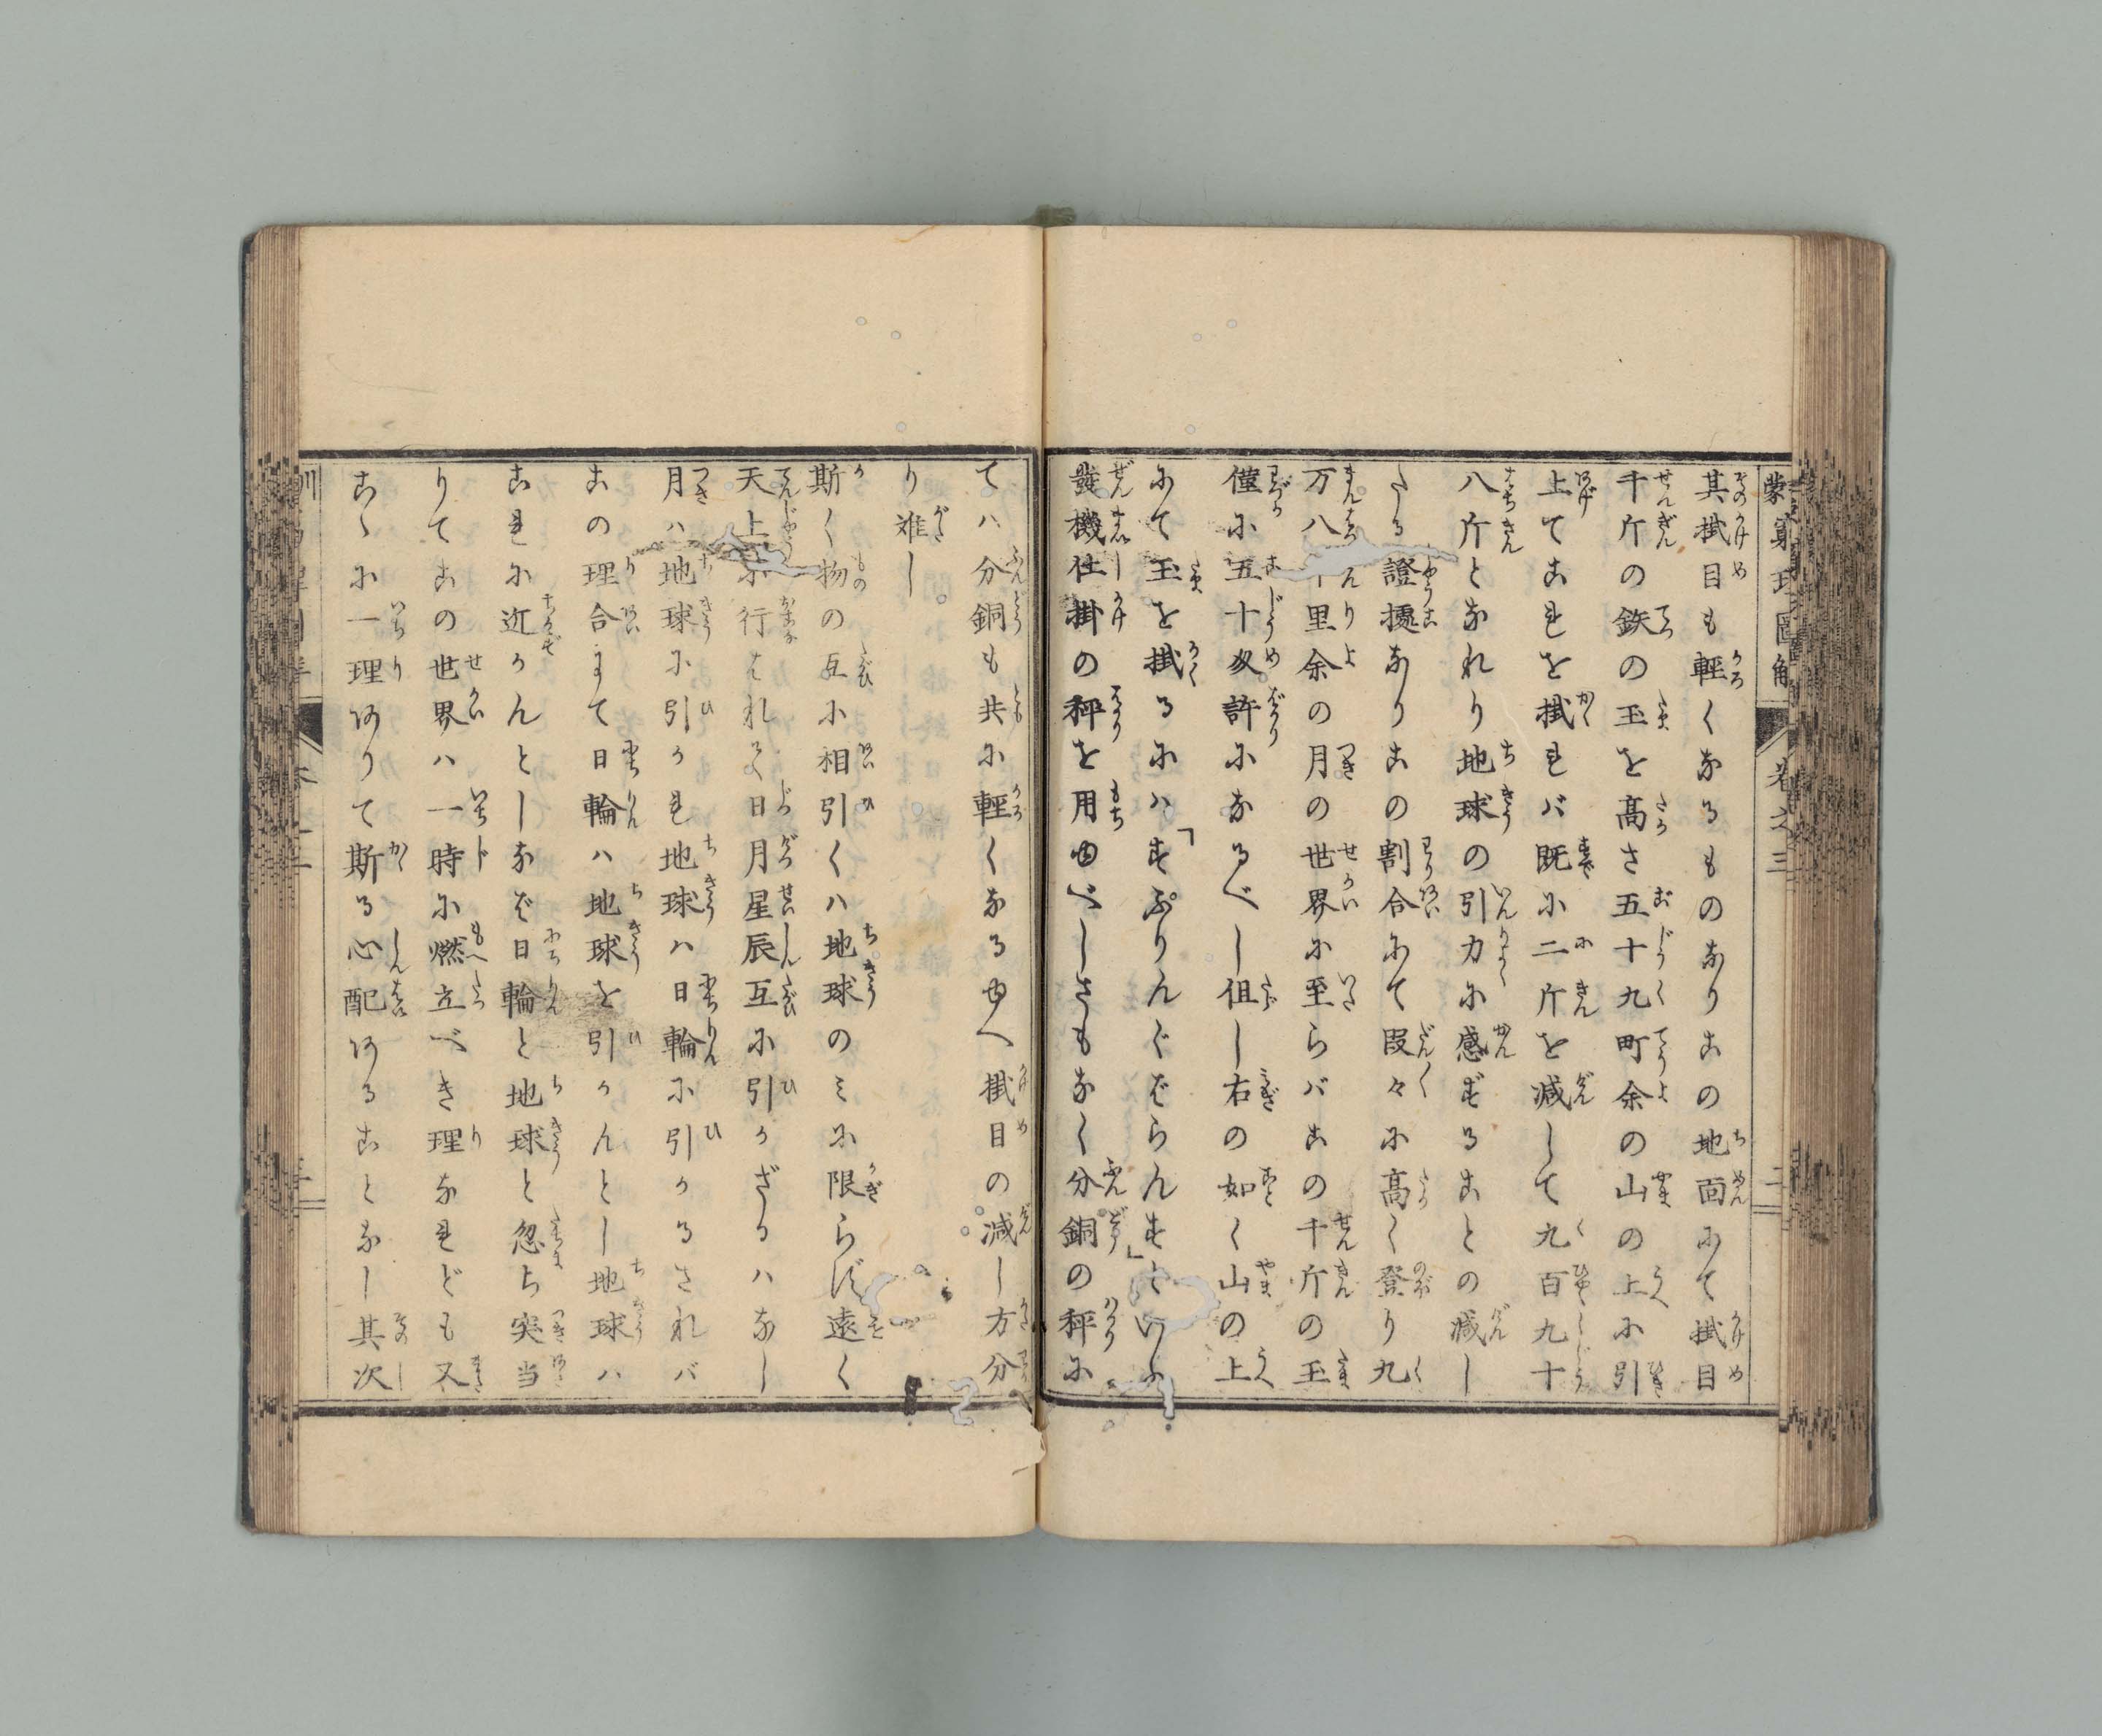 訓蒙窮理圖解 巻之三 二
其掛目も輕くなるものなりこの地面にて掛目
千斤の鉄の玉を高さ五十九町余の山の上に引
上てこれを掛れバ既に二斤を減して九百九十
八斤となれり地球の引力に感ずることの減し
たる證據なりこの割合にて段々に高く登り九
万八千里余の月の世界に至らバこの千斤の玉
僅に五十匁許になるべし但し右の如く山の上
にて玉を掛るにハ「すぷりんぐばらんす」といふ
機仕掛の秤を用ゆべしさもなく分銅の秤に
てハ分銅も共に輕くなるゆへ掛目の減し方分
り難し
斯く物の互に相引くハ地球のミに限らず遠く
天上に行はれて日月星辰互に引かざるハなし
月ハ地球に引かれ地球ハ日輪に引かるされバ
この理合にて日輪ハ地球を引かんとし地球ハ
これに近かんとしなば日輪と地球と忽ち突当
りてこの世界ハ一時に燃立べき理なれども又
こゝに一理ありて斯る心配あることなし其次